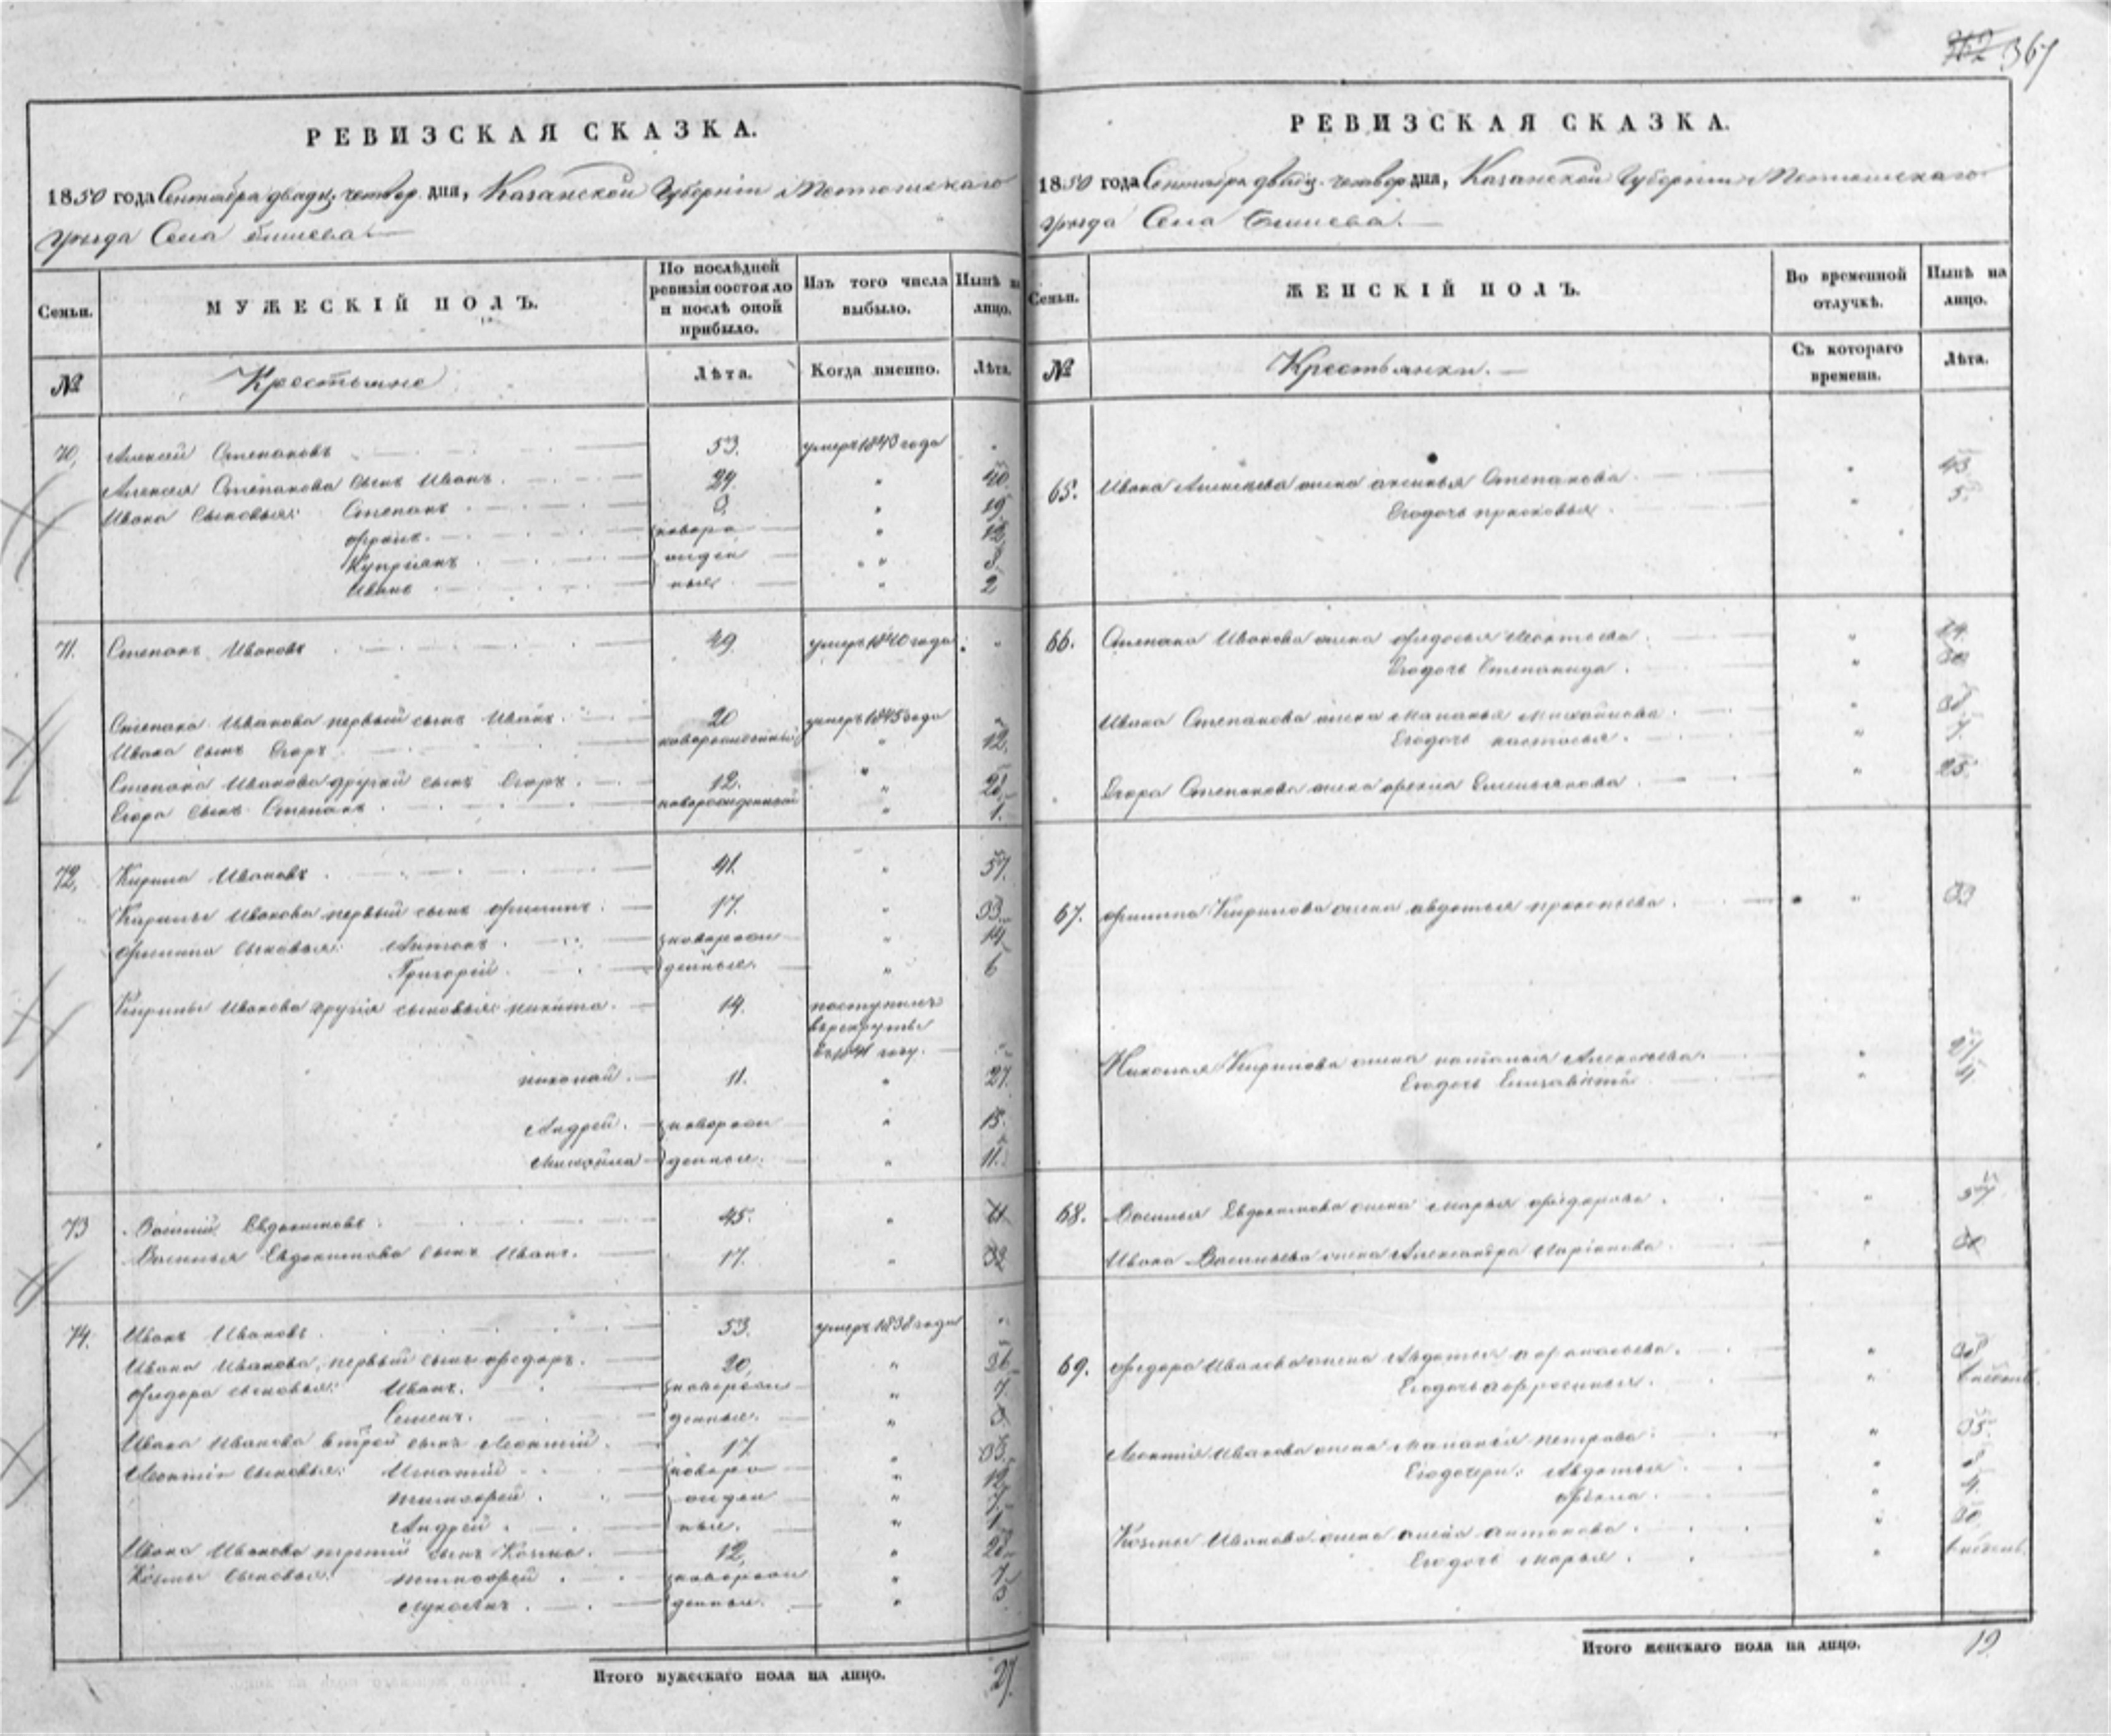 367
РЕВИЗСКАЯ СКАЗКА.
1850 года Сентября двадц. четвер. дня, Казанской Губернии
уезда Села
Семьи.
МУЖЕСКІЙ ПОЛЪ.
По послѣдней ревизіи состояло и послѣ оной прибыло.
Изъ того числа выбыло.
Нынѣ на лицо.
№
Крестьяне
Лѣта.
Когда именно.
Лѣта.
70. Алексей Степановъ 53. умеръ 1843 года
Алексея Степанова сынъ Иванъ. 40.
Ивана Сыновья: Степанъ 19
новоро
Купріянъ ожден
Иванъ ныя 2
71. Степанъ Ивановъ 49. умеръ 1840 года
Степана Иванова первый сынъ Иванъ. 20 умеръ 1845 года
Ивана сынъ Егоръ новорожденный 12.
Степана Иванова другой сынъ Егоръ. 12.
Егора сынъ Степанъ новорожденный 1.
72. Кирила Ивановъ 41. 57.
Кирилы Иванова первый сынъ Филипъ. 17. 33.
Филипа сыновья: Антонъ. новорож 14
Григорій. денные. 6
Кирилы Иванова другія сыновья: никита. 14. поступилъ
в рекруты
въ 1841 году.
николай. 11. 27.
Андрей. новорож 15.
Михайла денные. 11.
73 Василій Евдокимовъ. 45. 61
Василья Евдокимова сынъ Иванъ. 17. 33
74. Иванъ Ивановъ. 53. умеръ 1838 года
Ивана Иванова, первый сынъ федоръ. 20. 36
федора сыновья: Иванъ. новорож 7.
Семенъ. денные.
Ивана Иванова второй сынъ Леонтій. 17 33.
Леонтія сыновья: Игнатій новоро
тимофей. ожден
Андрей. ные. 1
Ивана Иванова третій сынъ Козма. 12. 28
Козмы сыновья: тимофей новорож
денные.
Итого мужескаго пола на лицо. 27.
РЕВИЗСКАЯ СКАЗКА.
1850 года Сентября двадц. четвер дня, Казанской Губерніи
уезда Села
Семьи.
ЖЕНСКІЙ ПОЛЪ.
Во временной отлучкѣ.
Нынѣ на лицо.
№
Крестьянки.
Съ котораго времени.
Лѣта.
65. Ивана Алексеева жена аксинья Степанова 43
Егодочь прасковья. 5.
66. Степана Иванова жена федосья Леонтьева
Егодочь Степанида.
Ивана Степанова жена Маланья Михайлова
Егодочь настасья.
Егора Степанова жена фекла Емельянова 25
67. филипа Кирилова жена авдотья прокопьева. 33
Николая Кирилова жена наталья Алексеева. 27
Егодочь Елизавета 4
68. Василья Евдокимова жена Марья федорова. 57
Ивана Васильева жена Александра
69. федора Иванова жена Авдотья
Егодочь
Леонтія Иванова жена Маланья петрова 35.
Егодочери: Авдотья
фекла. 4.
Козмы Иванова жена антонова. 30.
Егодочь марья.
Итого женскаго пола на лицо. 19